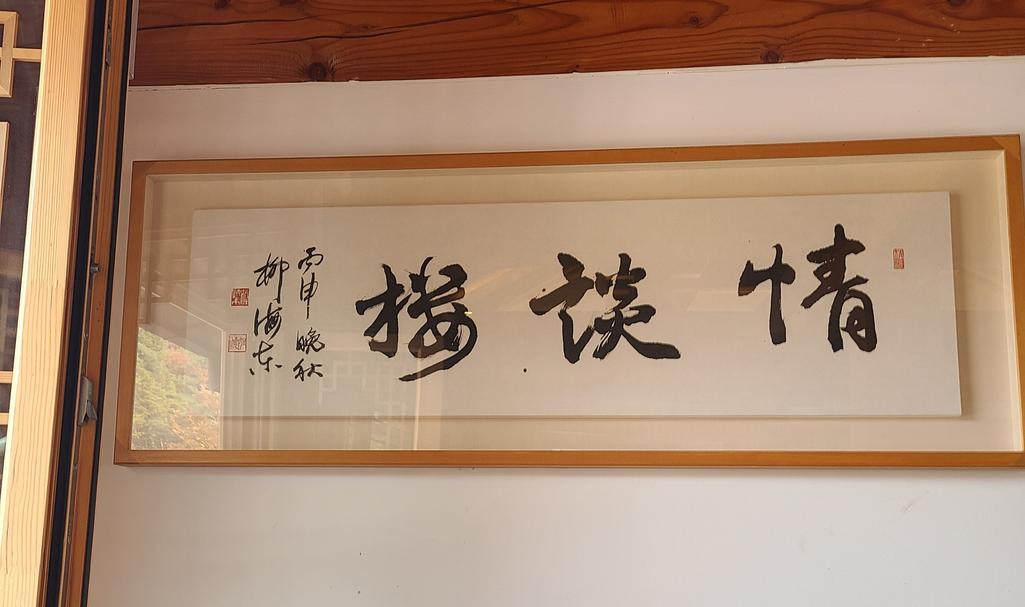 情談樓
丙申 晚秋
柳海东